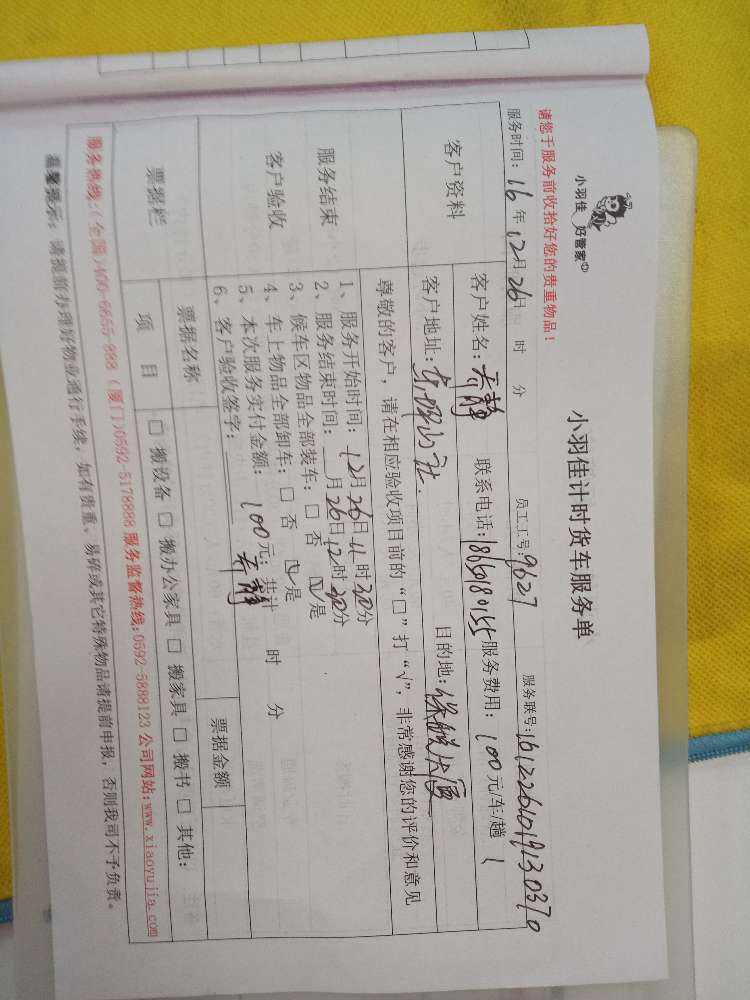 小羽佳 好管家
小羽佳计时货车服务单
请您于服务前收拾好您的贵重物品！
服务时间：16年12月26日 时 分 员工工号：9627 服务联号：
客户资料
客户姓名：乔静 联系电话：18650180155 服务费用：100元/车/趟
客户地址： 目的地：
尊敬的客户，请在相应验收项目前的“□”打“√”，非常感谢您的评价和意见
服务结束
客户验收
1、服务开始时间：12月26日11时30分
2、服务结束时间：__月26日12时30分
3、候车区物品全部装车：□ 否 ☑ 是
4、车上物品全部卸车：□ 否 ☑ 是
5、本次服务实付金额：100元；共计 时 分
6、客户验收签字：乔静
票据栏 票据名称 票据金额
项 目 □ 搬设备 □ 搬办公家具 □ 搬家具 □ 搬书 □ 其他：
服务热线：(全国)400-6655-888 (厦门)0592-5178888 服务监督热线：0592-5888123 公司网站：www.xiaoyujia.com
温馨提示：请提前办理好物业通行手续，如有贵重、易碎或其它特殊物品请提前申报，否则我司不予负责。